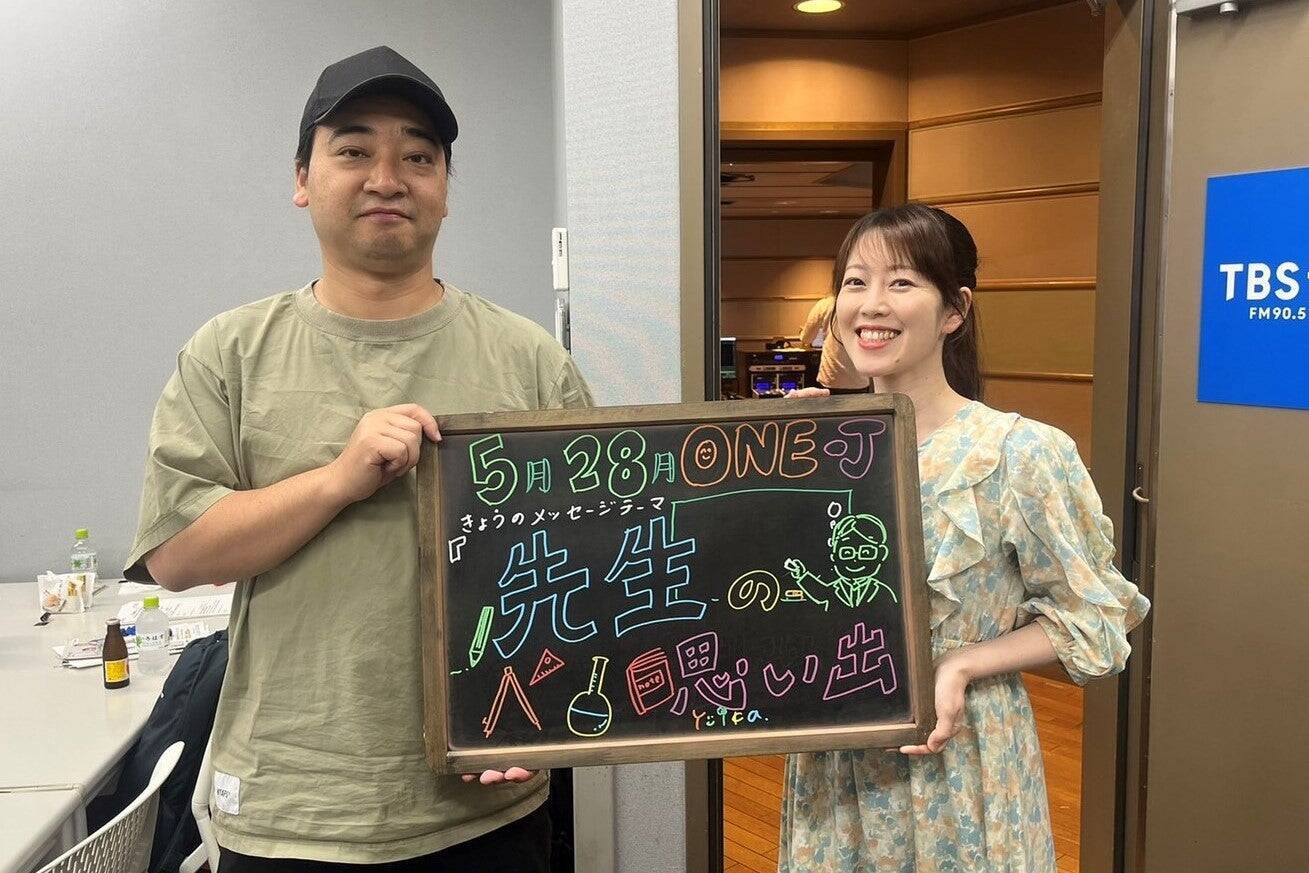 5月28月ONE-J
きょうのメッセージテーマ
『先生の
思い出
note
yuika.
TBS
FM90.5